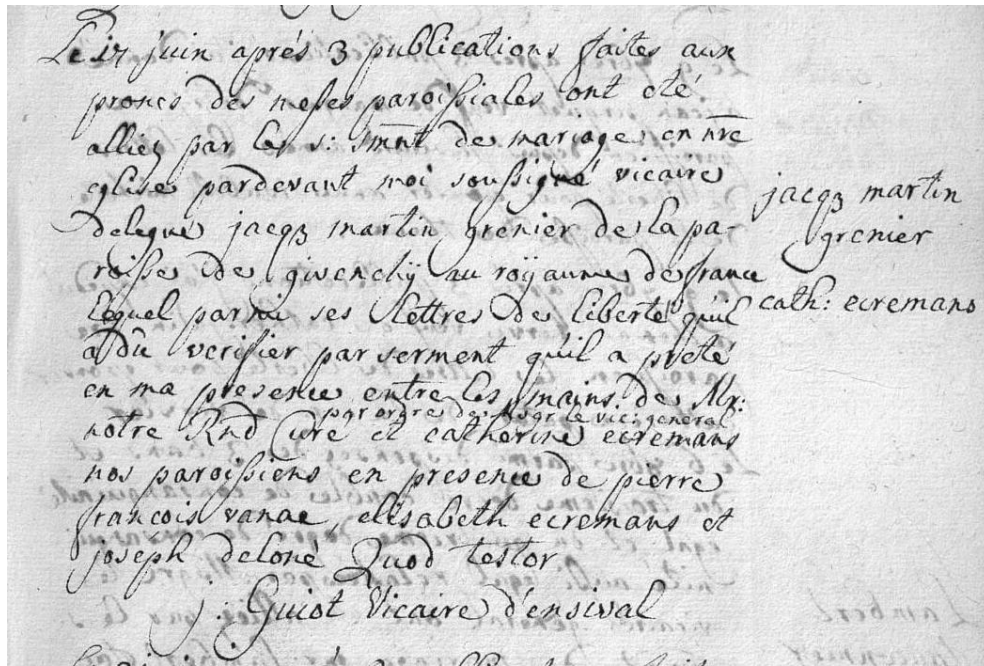 Le 17 juin aprés 3 publications faites aux
prones des messes paroissiales ont eté
alliez par le s: smnt de mariage en nre
eglise pardevant moi soussigné vicaire
delegué jacqz martin grenier de la pa-
roisse de givenchÿ au roÿaume de france
lequel parmi ses lettres de liberté qu'il
a du verifier par serment qu'il a preté
en ma presence entre les mains de Mr:
par ordre de msgr le vic: general
notre Rnd Curé et catherine ecremans
nos paroissiens en presence de pierre
francois vanae, elisabeth ecremans et
joseph deloné Quod testor
j: Guiot Vicaire d'ensival
jacqz martin
grenier
cath: ecremans